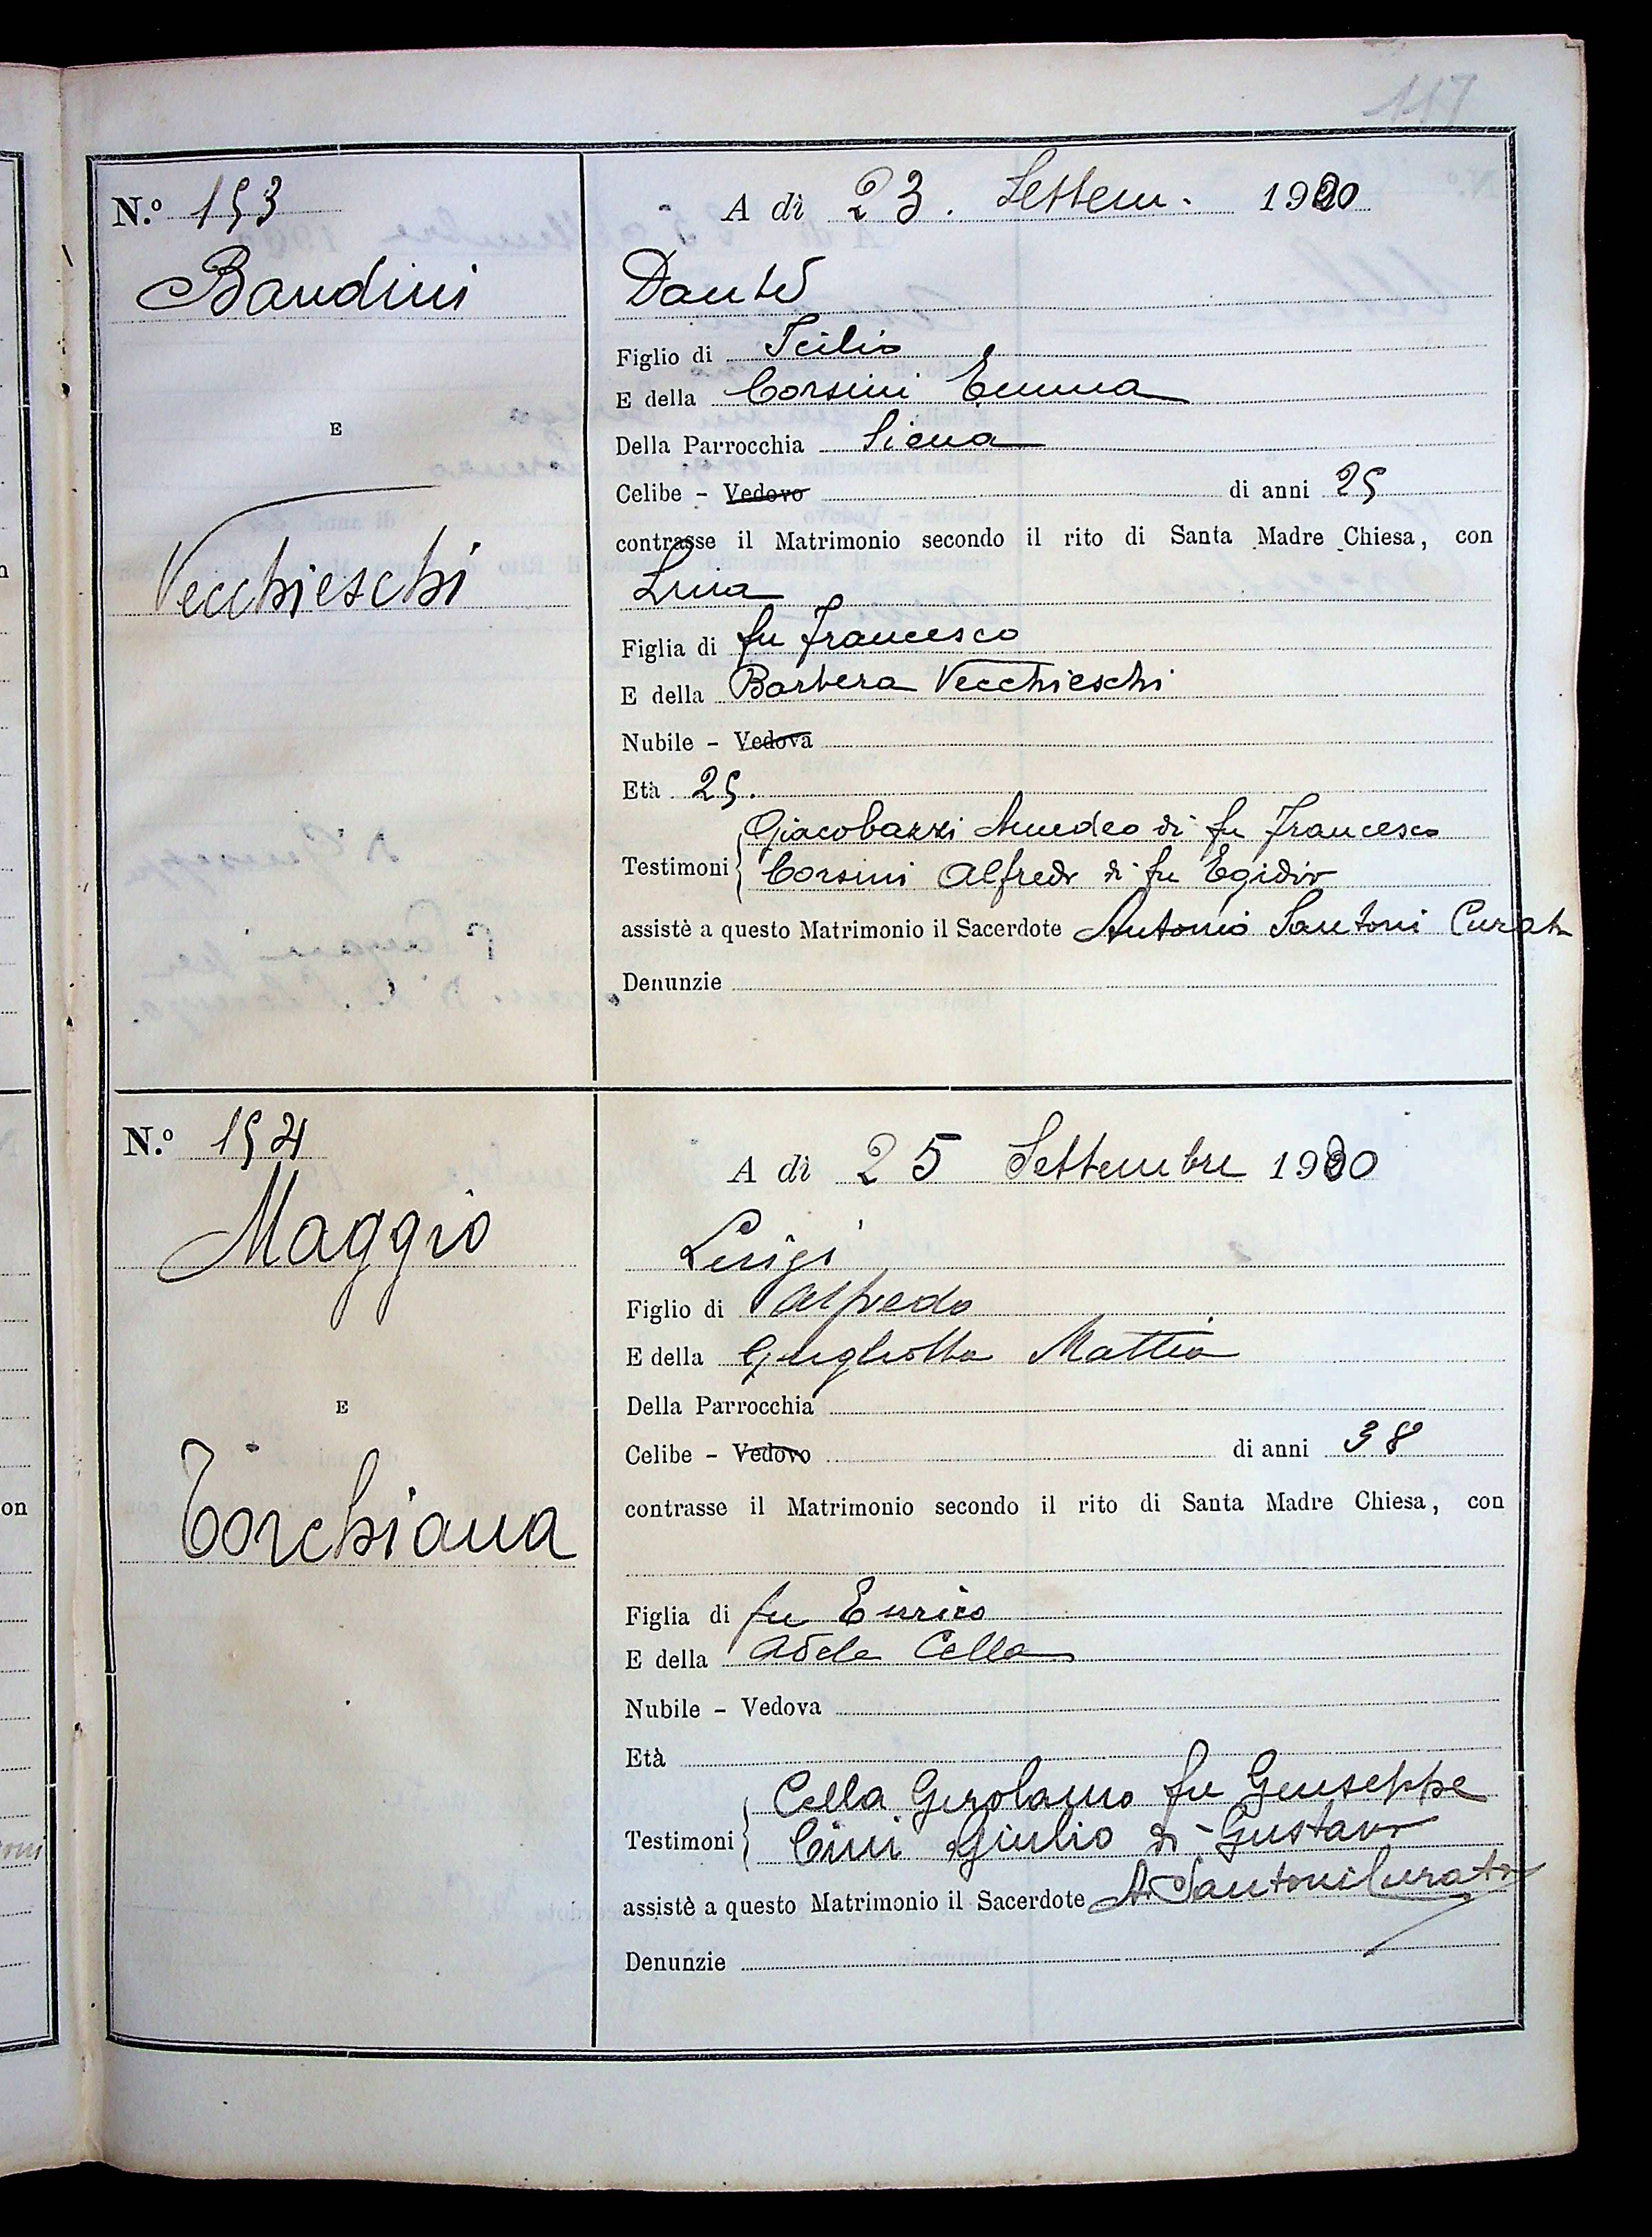 117
N.º 153
A dì 23. Settem. 1920
Bandini
Dante
Figlio di Icilio
E della Corsini Emma
E
Della Parrocchia Siena
Celibe - Vedovo di anni 25
contrasse il Matrimonio secondo il rito di Santa Madre Chiesa, con
Vecchieschi
Luia
Figlia di fu Francesco
E della Barbera Vecchieschi
Nubile - Vedova
Età 25.
Giacobazzi Amedeo di fu Francesco
Testimoni
Corsini Alfredo di fu Egidio
assistè a questo Matrimonio il Sacerdote Antonio Santoni Curato
Denunzie
N.º 154
A dì 25 Settembre 1920
Maggio
Luigi
Figlio di Alfredo
E della Gugliotta Mattia
E
Della Parrocchia
Celibe - Vedovo di anni 38
contrasse il Matrimonio secondo il rito di Santa Madre Chiesa, con
Torchiana
Figlia di fu Enrico
E della Adele Cella
Nubile - Vedova
Età
Cella Gerolamo fu Giuseppe
Testimoni
Cini Giulio di Gustavo
assistè a questo Matrimonio il Sacerdote A. Santoni Curato
Denunzie